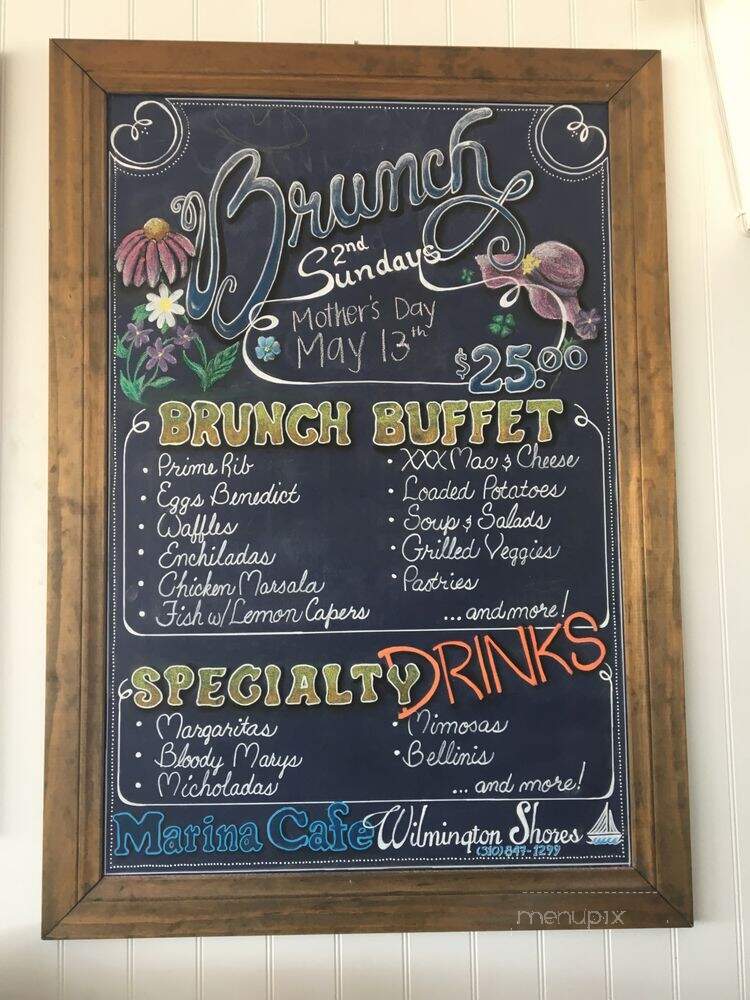 Brunch
2nd
Sundays
Mother's Day
May 13th
$25.00
BRUNCH BUFFET
• Prime Rib
• Eggs Benedict
• Waffles
• Enchiladas
• Chicken Marsala
• Fish w/Lemon Capers
• XXX Mac & Cheese
• Loaded Potatoes
• Soup & Salads
• Grilled Veggies
• Pastries
...and more!
SPECIALTY DRINKS
• Margaritas
• Bloody Marys
• Micholadas
• Mimosas
• Bellinis
...and more!
Marina Cafe Wilmington Shores
(310) 847-1299
menupix